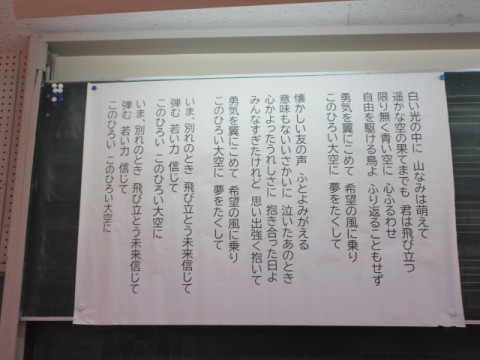 白い光の中に 山なみは萌えて
遥かな空の果てまでも 君は飛び立つ
限り無く青い空に 心ふるわせ
自由を駆ける鳥よ ふり返ることもせず
勇気を翼にこめて 希望の風に乗り
このひろい大空に 夢をたくして
懐かしい友の声 ふとよみがえる
意味もないいさかいに 泣いたあのとき
心かよったうれしさに 抱き合った日よ
みんなすぎたけれど 思い出強く抱いて
勇気を翼にこめて 希望の風に乗り
このひろい大空に 夢をたくして
いま、別れのとき 飛び立とう未来信じて
弾む 若い力 信じて
このひろい このひろい大空に
いま、別れのとき 飛び立とう未来信じて
弾む 若い力 信じて
このひろい このひろい大空に